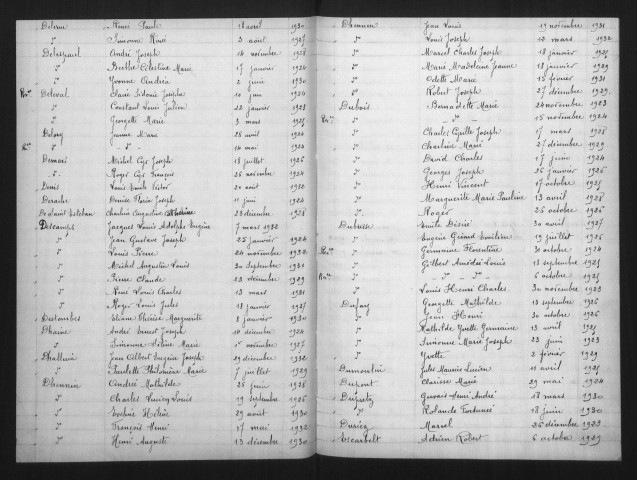 Delerue René Paul 18 août 1930
d° Simonne Rose 3 août 1927
Delespaul André Joseph 14 novembre 1928
d° Berthe Célestine Marie 17 janvier 1924
d° Yvonne Andréa juin 1930
Deleval Marie Sidonie Josephe 10 juin 1924
d° Constant Louis Julien 22 janvier 1923
d° Georgette Marie 3 mars 1925
Delory Jeanne Marie 28 avril 1924
d° - d° - 14 mai 1924
Demars Michel Cyr Joseph 18 juillet 1926
d° Roger Cyr François 26 novembre 1924
Denis Louis Emile Victor 20 août 1932
Derache Denise Marie Josèphe 11 juin 1924
Charline Augustine 23 décembre 1928
Descamps Jacques Louis Adolphe Eugène 7 mars 1932
d° Jean Gustave Joseph 25 janvier 1924
d° Louis Pierre 24 novembre 1932
d° Michel Augustin Louis 30 septembre 1931
d° Pierre Claude 22 décembre 1929
d° René Louis Charles 13 mars 1931
d° Roger Louis Jules 18 janvier 1925
Destombes Eliane Thérèse Marguerite 8 janvier 1930
Dhaine André Ernest Joseph 10 décembre 1924
d° Simonne Hélène Marie 1er novembre 1927
Dhalluin Jean Albert Eugène Joseph 29 décembre 1932
d° Paulette Philomène Marie 7 juillet 1929
Dhennin Andréa Mathilde 28 juin 1928
d° Charles Louis Joseph 19 septembre 1926
d° Eugénie Hélène 29 août 1930
d° François Henri 17 mai 1932
d° Henri Auguste 13 décembre 1930
Dhennin Jean Louis 19 novembre 1931
d° Louis Joseph 12 mars 1932
d° Marcel Charles Joseph 18 janvier 1925
d° Marie Madeleine Jeanne 18 janvier 1929
d° Odette Marie 15 février 1931
d° Robert Joseph 27 décembre 1929
Dubois Bernadette Marie 24 novembre 1923
d° 15 novembre 1924
d° Charles Cyrille Joseph 17 mars 1928
d° Charline Marie 27 décembre 1929
d° David Charles 17 juin 1924
d° Georges Joseph 26 janvier 1926
d° Henri Vincent 17 octobre 1925
d° Marguerite Marie Pauline 13 avril 1928
d° Roger 25 octobre 1926
Dubusse Emile Désiré 30 avril 1927
d° Eugène Gérard Emilien 19 juillet 1926
d° Germaine Florentine 30 octobre 1924
d° Gilbert Amédée Louis 18 septembre 1925
d° - d° - d° - 6 octobre 1925
d° Louis Henri Charles 30 novembre 1923
Dufour Georgette Mathilde 13 septembre 1926
d° Jean Henri 30 octobre 1926
d° Mathilde Yvette Germaine 13 avril 1925
d° Simonne Marie Joseph 23 juin 1923
d° Yvette 2 février 1929
Dumoulin Jules Maurice Lucien 11 avril 1925
Dupont Clarisse Marie 29 mai 1924
Dupretz Gervais Henri André 18 mars 1930
d° Rolande Fortunée 18 juin 1930
Duriez Marcel 26 décembre 1923
Escarbelt Adrien Robert 6 octobre 1929